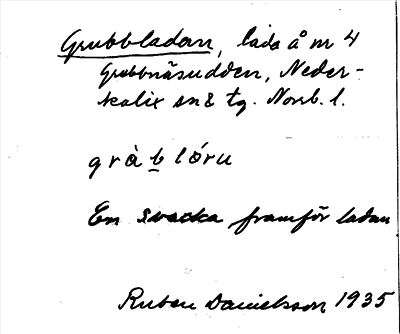 Grubbladan, lada å m 4
Grubbnäsudden, Neder-
kalix sn & tg. Norrb. l.
gràb lóru
En svacka framför ladan
Ruben Danielsson 1935